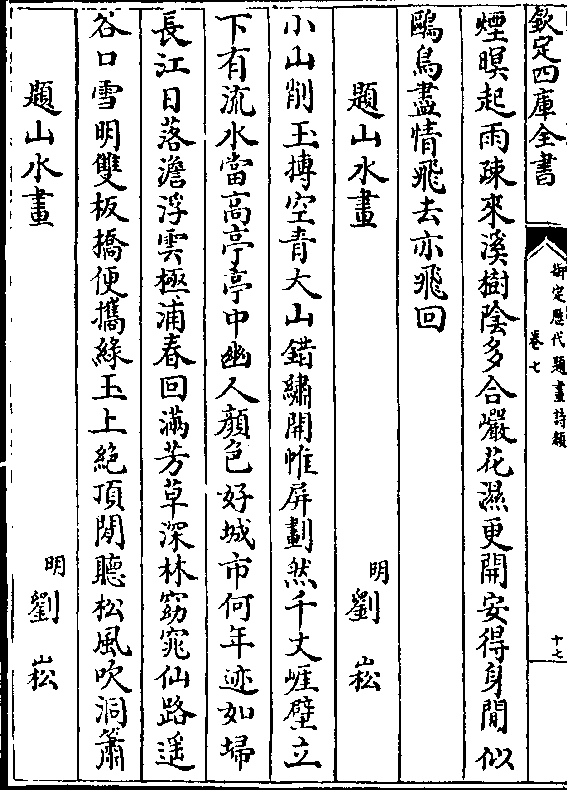 欽定四庫全書
御定歷代題畫詩類
卷七
十七
煙暝起雨疎來溪樹陰多合巖花濕更開安得身閒似
鷗鳥盡情飛去亦飛回
題山水畫
明
劉崧
小山削玉摶空青大山錯繡開帷屏劃然千丈崖壁立
下有流水當高亭亭中幽人顔色好城市何年迹如埽
長江日落澹浮雲極浦春回滿芳草深林窈窕仙路遥
谷口雪明雙板橋便攜綠玉上絶頂閒聽松風吹洞簫
題山水畫
明
劉崧